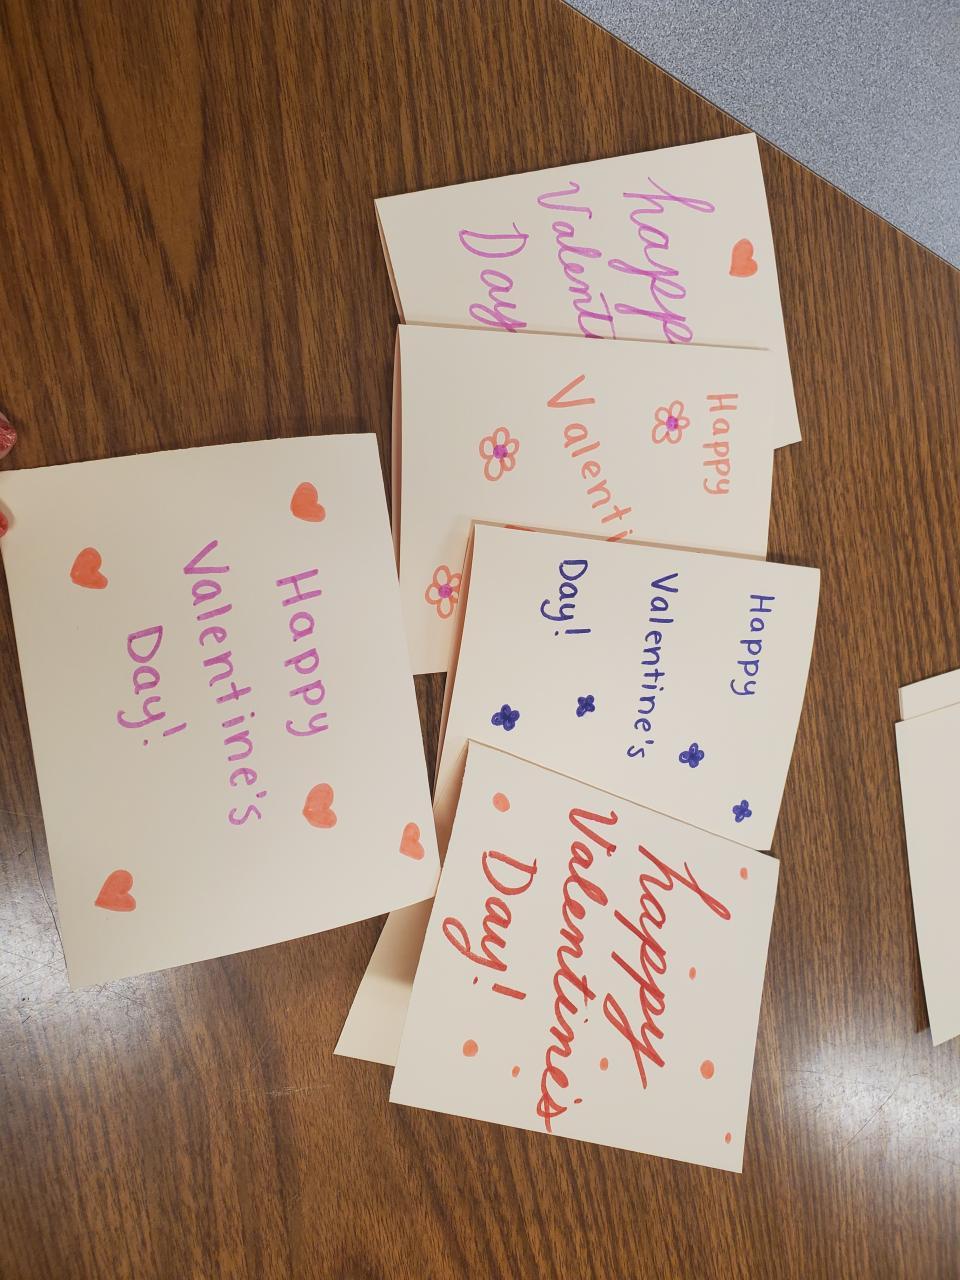 happy
Valenti
Day
Happy
Valenti
Happy
Valentine's
Day!
happy
Valentine's
Day!
Happy
Valentine's
Day!